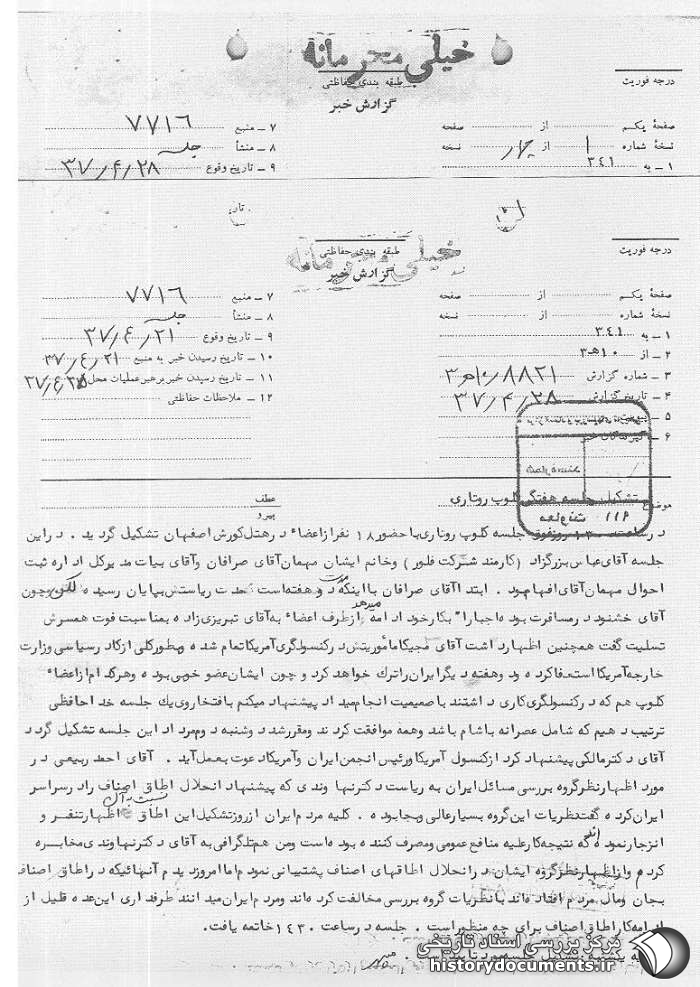 خیلی محرمانه
طبقه بندی حفاظتی
گزارش خبر
درجه فوریت
صفحهٔ یکم از صفحه
نسخهٔ شماره ۱ از چهار نسخه
۱ ـ به ۳۴۱
۷ ـ منبع ۷۷۱۶
۸ ـ منشأ جلسه
۹ ـ تاریخ وقوع ۳۷/۴/۲۸
خیلی محرمانه
طبقه بندی حفاظتی
گزارش خبر
درجه فوریت
صفحهٔ یکم از صفحه
نسخهٔ شماره از نسخه
۱ ـ به ۳۴۱
۲ ـ از ۱۰هـ۳
۳ ـ شماره گزارش ۳/۱۰هـ/۸۸۲۱
۴ ـ تاریخ گزارش ۳۷/۴/۲۸
۵ ـ
۶ ـ گیرندگان خبر
۷ ـ منبع ۷۷۱۶
۸ ـ منشأ جلسه
۹ ـ تاریخ وقوع ۳۷/۴/۲۱
۱۰ ـ تاریخ رسیدن خبر به منبع ۳۷/۴/۲۱
۱۱ ـ تاریخ رسیدن خبر برهبرعملیات محل ۳۷/۴/۲۵
۱۲ ـ ملاحظات حفاظتی
موضوع تشکیل جلسه هفتگی کلوپ روتاری
عطف
پیرو
در ساعت روز فوق جلسه کلوپ روتاری با حضور ۱۸ نفر از اعضاء در هتل کورش اصفهان تشکیل گردید . در این
جلسه آقای عباس بزرگزاد (کارمند شرکت فلور) وخانم ایشان مهمان آقای صرافان وآقای بیات مدیرکل اداره ثبت
احوال مهمان آقای افهام بود . ابتدا آقای صرافان با اینکه دو هفته است مدت ریاستش بپایان رسیده لکن چون
آقای خشنود در مسافرت بود ه اجبارا" بکار خود ادامه میدهد از طرف اعضاء به آقای تبریزی زاده بمناسبت فوت همسرش
تسلیت گفت همچنین اظهار داشت آقای مأموریتش در کنسولگری آمریکا تمام شده وبطورکلی از کادر سیاسی وزارت
خارجه آمریکا استعفا کرده ودو هفته دیگر ایران را ترک خواهد کرد و چون ایشان عضو خوبی بوده وهرکدام از اعضاء
کلوپ هم که در کنسولگری کاری داشتند با صمیمیت انجام میداد پیشنهاد میکنم بافتخار وی یک جلسه خداحافظی
ترتیب دهیم که شامل عصرانه باشام باشد وهمه موافقت کردند ومقررشد دوشنبه دوم مرداد این جلسه تشکیل گردد
آقای دکتر مالکی پیشنهاد کرد از کنسول آمریکا ورئیس انجمن ایران وآمریکا دعوت بعمل آید . آقای احمد ربیعی در
مورد اظهار نظر گروه بررسی مسائل ایران به ریاست دکتر نهاوندی که پیشنهاد انحلال اطاق اصناف را در سراسر
ایران کرده گفت نظریات این گروه بسیار عالی وبجا بوده . کلیه مردم ایران از روز تشکیل این اطاق نسبت به آن اظهار تنفر و
انزجار نموده اند که نتیجه کار علیه منافع عمومی ومصرف کننده بوده است ومن هم تلگرافی به آقای دکتر نهاوندی مخابره
کردم واز اظهار نظر گروه ایشان در انحلال اطاقهای اصناف پشتیبانی نمودم اما امروز دیدم آنهائیکه در اطاق اصناف
بجان ومال مردم افتاده اند با نظریات گروه بررسی مخالفت کرده اند ومردم ایران میدانند طرفداری این عده قلیل از
ادامه کار اطاق اصناف برای چه منظور است . جلسه در ساعت ۱۴۳۰ خاتمه یافت.
مرکز بررسی اسناد تاریخی
historydocuments.ir